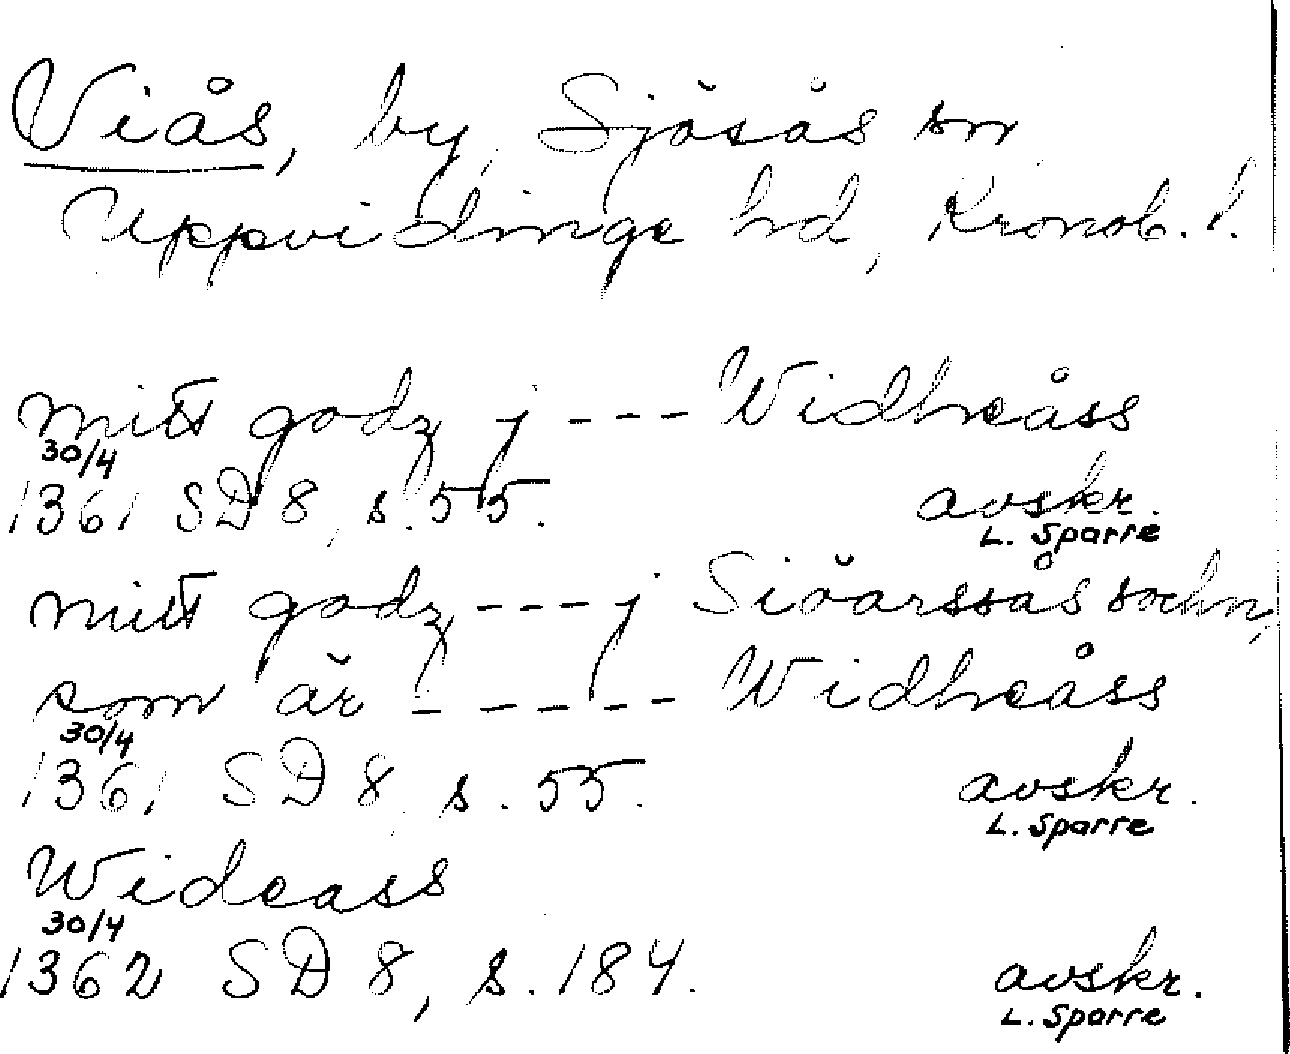 Viås, by, Sjösås sn
Uppvidinge hd, Kronob. l.
mitt godz j --- Widheåss
30/4
1361 SD 8, s. 55. avskr.
L. Sparre
mitt godz --- j Siöarssås sochn,
som är ----- Widheåss
30/4
1361 SD 8, s. 55. avskr.
L. Sparre
Wideass
30/4
1362 SD 8, s. 184. avskr.
L. Sparre